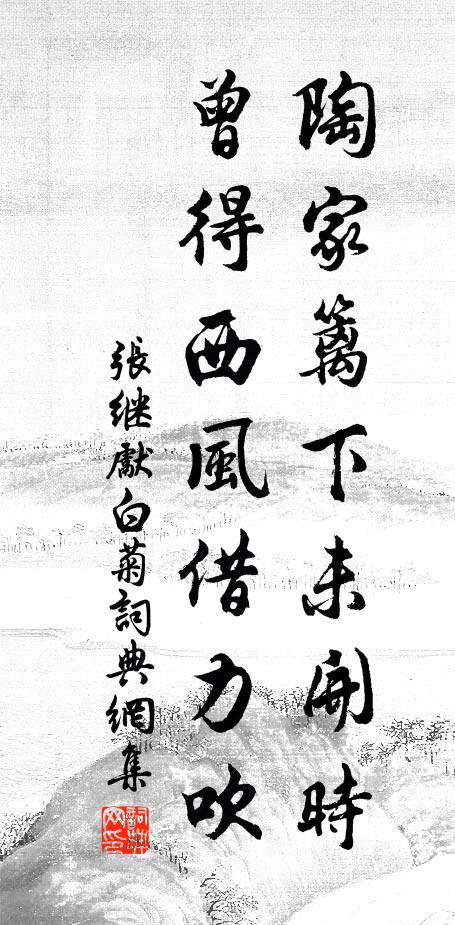 陶家篱下未開時
曾得西風借力吹
張继獻白菊詞典網集